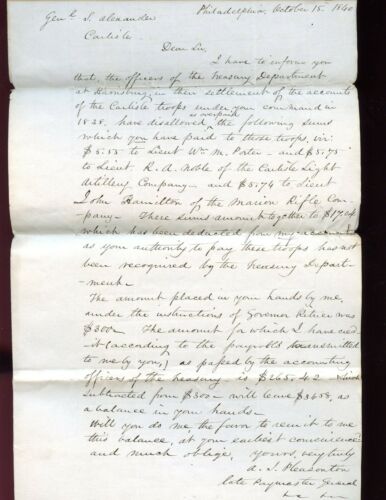 Philadelphia, October 15. 1840
Genl S. Alexander
Carlisle
Dear Sir,
I have to inform you
that, the officers of the Treasury Department
at Harrisburg, in their settlement of the accounts
of the Carlisle troops under your command in
1838. have disallowed, as overpaid the following sums
which you have paid to those troops, viz:
$5.55 to Lieut Wm. M. Porter - and $5.75
to Lieut. R. A. Noble of the Carlisle Light
Artillery Company - and $5.74 to Lieut
John Hamilton of the Marion Rifle Com-
pany - These sums amount together to $17.04
which has been deducted from my account
as your authority to pay these troops has not
been recognized by the Treasury Depart-
ment -
The amount placed in your hands by me,
under the instructions of Governor Ritner was
$300 - The amount for which I have cred-
it (according to the payrolls transmitted
to me by you,) as passed by the accounting
officers of the Treasury is $265.42 - which
subtracted from $300 - will leave $34.58, as
a balance in your hands -
Will you do me the favor to remit to me
this balance, at your earliest convenience
and much oblige, yours, very truly
A. J. Pleasonton
late Paymaster General